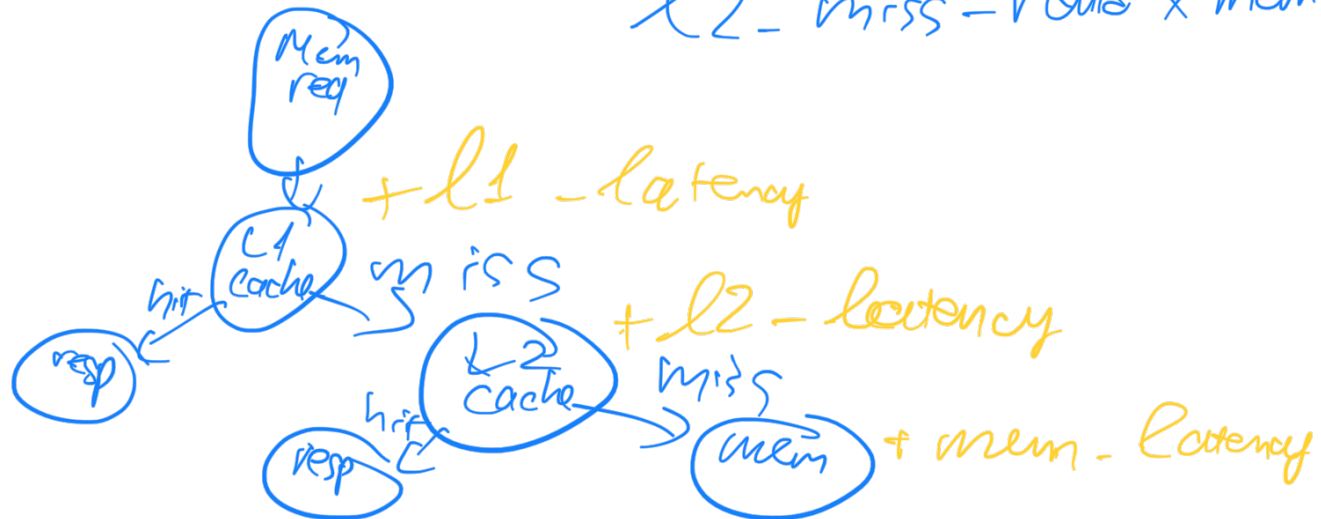 l2_miss_rate x mem
Mem
req
+ l1_latency
L1
cache
hit
miss
resp
+ l2_latency
L2
cache
miss
hit
resp
mem
+ mem_latency